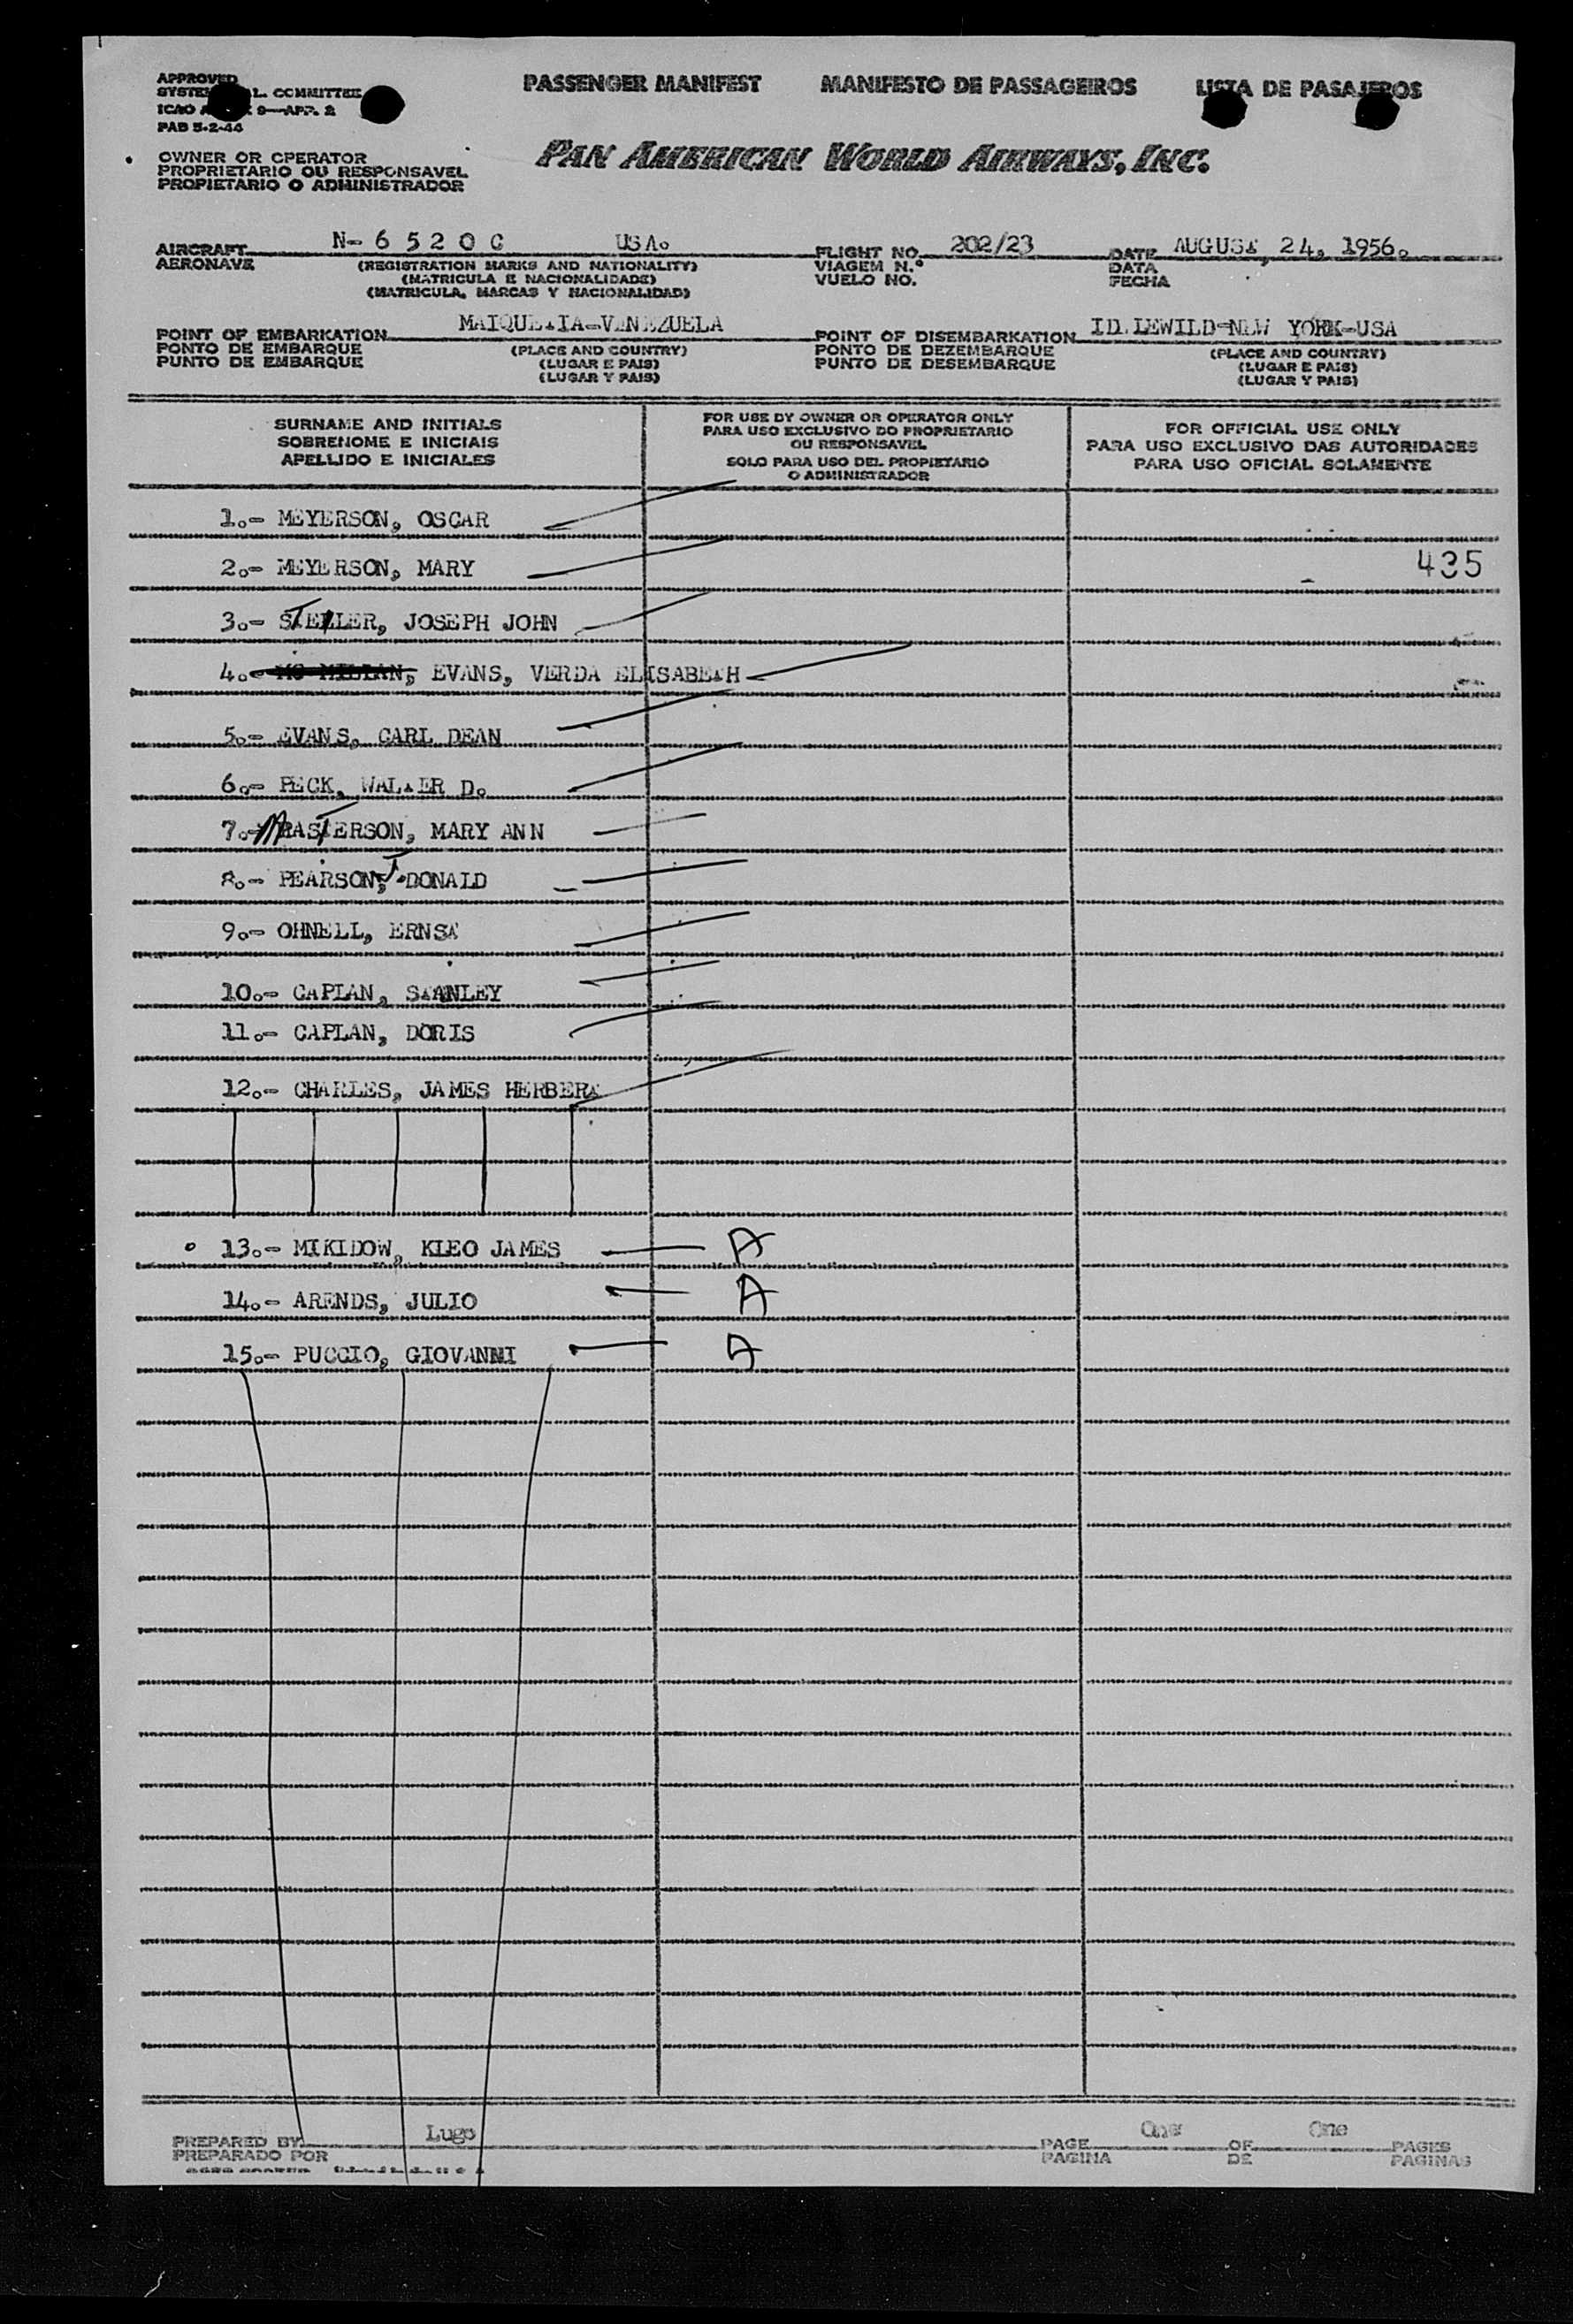 APPROVED
PASSENGER MANIFEST MANIFESTO DE PASSAGEIROS LISTA DE PASAJEROS
L. COMMITTEE
ICAO 9—APP. 2
PAB 5-2-44
PAN AMERICAN WORLD AIRWAYS, INC.
OWNER OR OPERATOR
PROPRIETARIO OU RESPONSAVEL
PROPIETARIO O ADMINISTRADOR
AIRCRAFT N- 6 5 2 0 C USA. FLIGHT NO. 202/23 DATE AUGUST, 24, 1956.
AERONAVE (REGISTRATION MARKS AND NATIONALITY) VIAGEM N.º DATA
(MATRICULA E NACIONALIDADE) VUELO NO. FECHA
(MATRICULA, MARCAS Y NACIONALIDAD)
POINT OF EMBARKATION MAIQUETIA-VENEZUELA POINT OF DISEMBARKATION IDLEWILD-NEW YORK-USA
PONTO DE EMBARQUE (PLACE AND COUNTRY) PONTO DE DEZEMBARQUE (PLACE AND COUNTRY)
PUNTO DE EMBARQUE (LUGAR E PAIS) PUNTO DE DESEMBARQUE (LUGAR E PAIS)
(LUGAR Y PAIS) (LUGAR Y PAIS)
SURNAME AND INITIALS
SOBRENOME E INICIAIS
APELLIDO E INICIALES
FOR USE BY OWNER OR OPERATOR ONLY
PARA USO EXCLUSIVO DO PROPRIETARIO
OU RESPONSAVEL
SOLO PARA USO DEL PROPIETARIO
O ADMINISTRADOR
FOR OFFICIAL USE ONLY
PARA USO EXCLUSIVO DAS AUTORIDADES
PARA USO OFICIAL SOLAMENTE
1.- MEYERSON, OSCAR
2.- MEYERSON, MARY 435
3.- STELLER, JOSEPH JOHN
4.- MC MILLAN, EVANS, VERDA ELISABETH
5.- EVANS, CARL DEAN
6.- PECK, WALTER D.
7.- MASTERSON, MARY ANN
8.- PEARSON, J. DONALD
9.- OHNELL, ERNST
10.- CAPLAN, STANLEY
11.- CAPLAN, DORIS
12.- CHARLES, JAMES HERBERT
13.- MIKIDOW, KLEO JAMES A
14.- ARENDS, JULIO A
15.- PUCCIO, GIOVANNI A
PREPARED BY Lugo PAGE One OF One PAGES
PREPARADO POR PAGINA DE PAGINAS